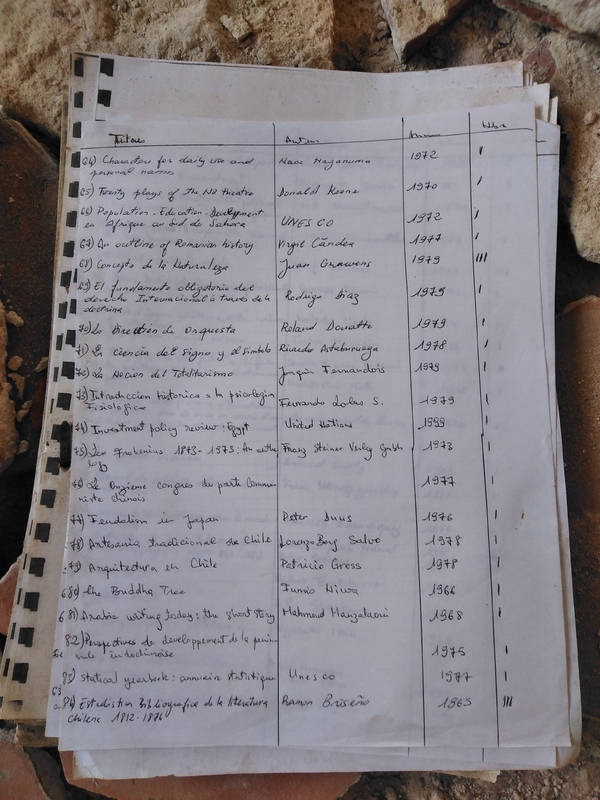 64) Characters for daily use and Naoe Naganuma 1972 I
personal names
65) Twenty plays of the Nô theatre Donald Keene 1970 I
66) Population - Education - Development UNESCO 1972 I
en Afrique au Sud du Sahara
67) An outline of Romanian history Virgil Cândea 1977 I
68) Concepto de la Naturaleza Juan 1979 III
69) El fundamento obligatorio del Rodrigo Diaz 1979 I
derecho Internacional a través de la
doctrina
70) La Dirección de Orquesta Roland Douatte 1979 I
71) La ciencia del Signo y el Simbolo Ricardo 1978 I
72) La Nocion del Totalitarismo Joaquin Fernandois 1979 I
73) Introduccion historica a la psicologia Fernando Lolas S. 1979 I
Fisiologica
74) Investment policy review: Egypt United Nations 1999 I
75) Leo Frobenius 1873-1973: An antho Franz Steiner Verlag Gmbh 1973 I
logy
76) Le Onzieme congres du parti Commu 1977 I
niste chinois
77) Feudalism in Japan Peter Duus 1976 I
78) Artesania tradicional de Chile Lorenzo Berg Salvo 1978 I
79) Arquitectura en Chile Patricio Gross 1978 I
680) The Buddha Tree Fumio Niwa 1966 I
681) Arabic writing today: the short story Mahmoud Manzalaoui 1968 I
82) Perspectives de developpement de la penin 1975 I
sule indochinoise
83) Statical yearbook: annuaire statistique Unesco 1977 I
84) Estadistica Bibliografica de la literatura Ramon Briseño 1965 III
Chilena 1812-1876